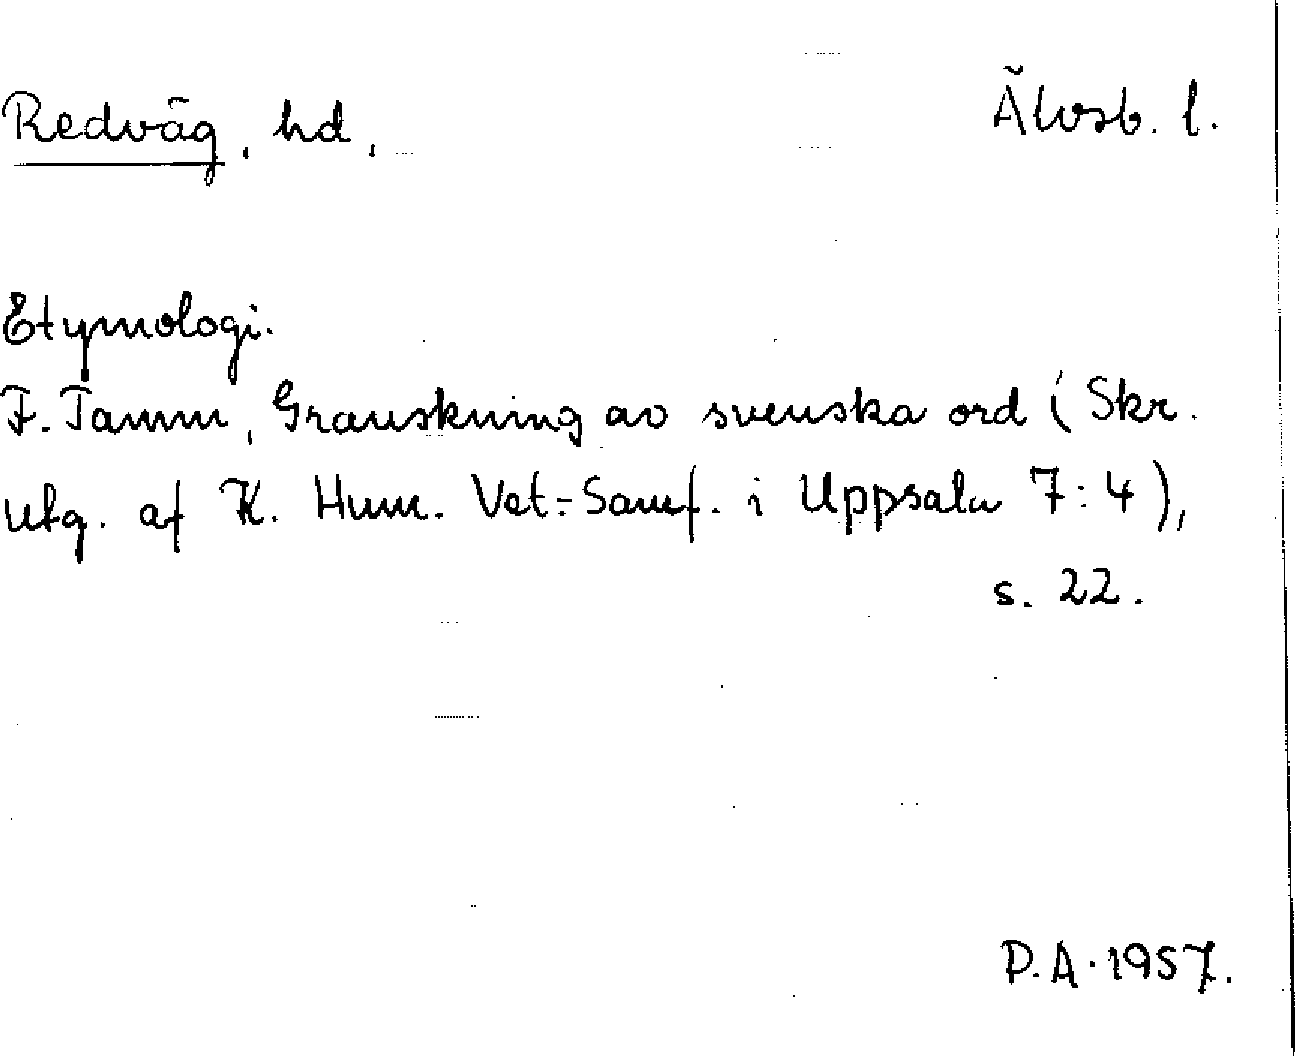 Redväg, hd, Älvsb. l.
Etymologi.
F. Tamm, Granskning av svenska ord (Skr.
utg. af K. Hum. Vet.-Samf. i Uppsala 7:4),
s. 22.
P.A. 1957.